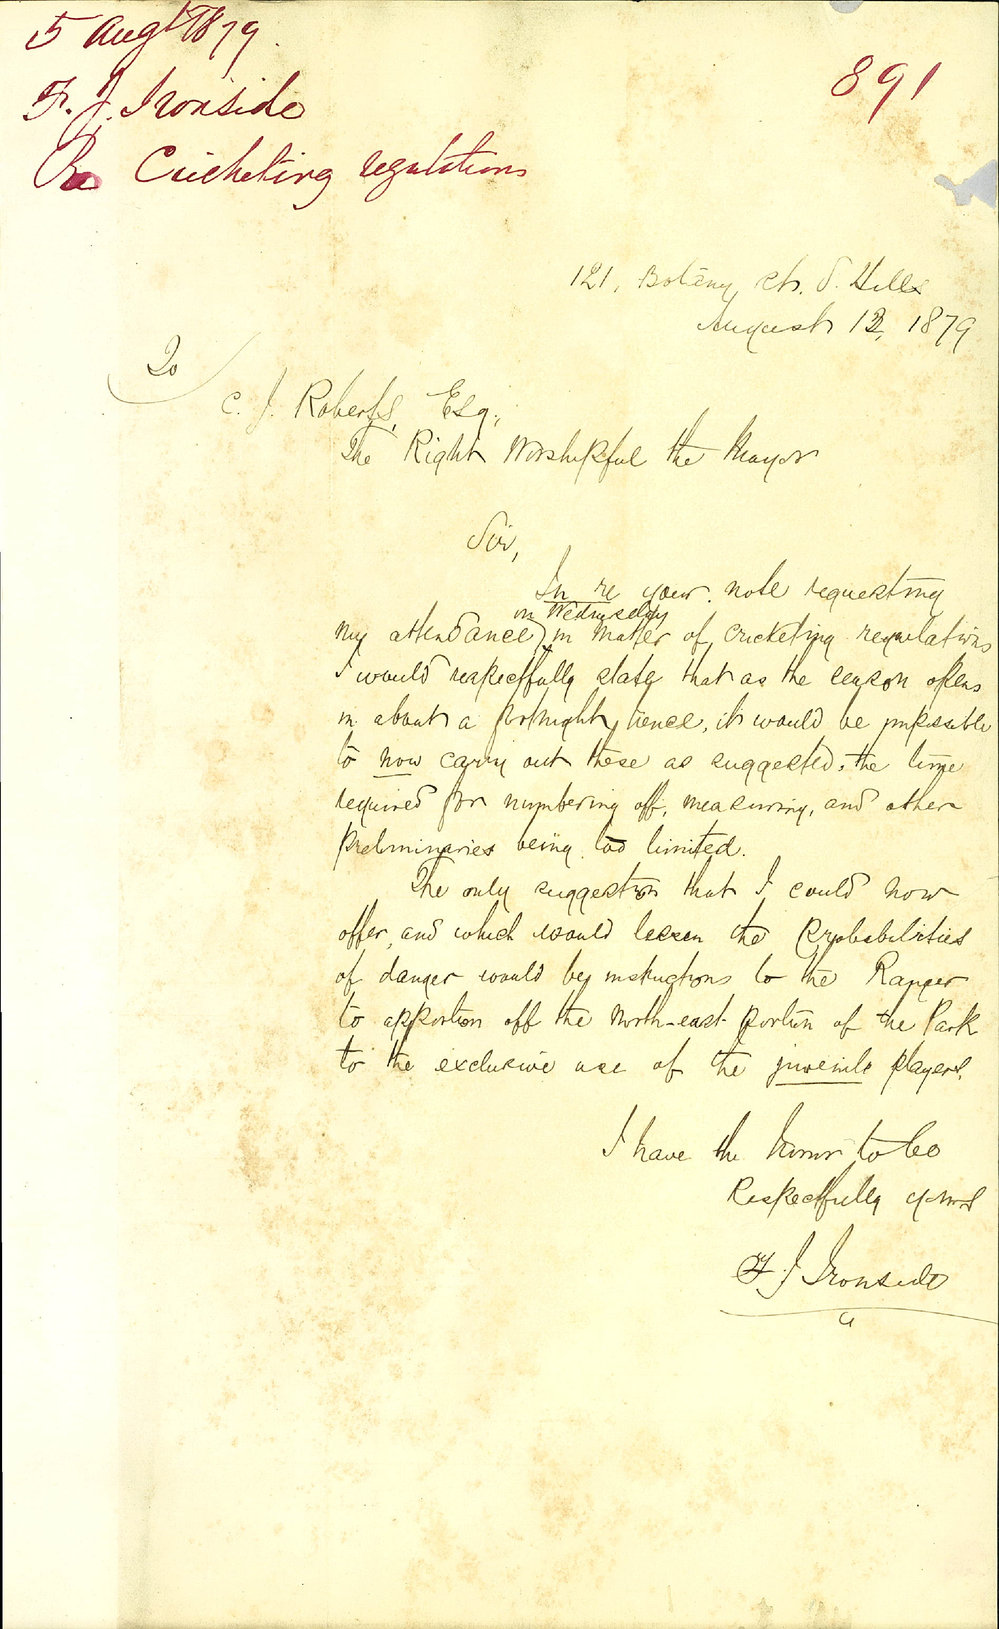 5 Augt 1879.
F. J. Ironside
Re Cricketing regulations
891
121, Botany St. S. Hills
August 12, 1879
To
C. J. Roberts, Esq.,
The Right Worshipful the Mayor
Sir,
In re your note requesting
on Wednesday
my attendance in matter of cricketing regulations
I would respectfully state that as the season opens
in about a fortnight hence, it would be impossible
to now carry out these as suggested, the time
required for numbering off, measuring, and other
preliminaries being too limited.
The only suggestion that I could now
offer, and which would lessen the probabilities
of danger would be instructions to the Ranger
to apportion off the North-east portion of the Park
to the exclusive use of the juvenile players.
I have the honor to be
Respectfully yours
F J Ironside